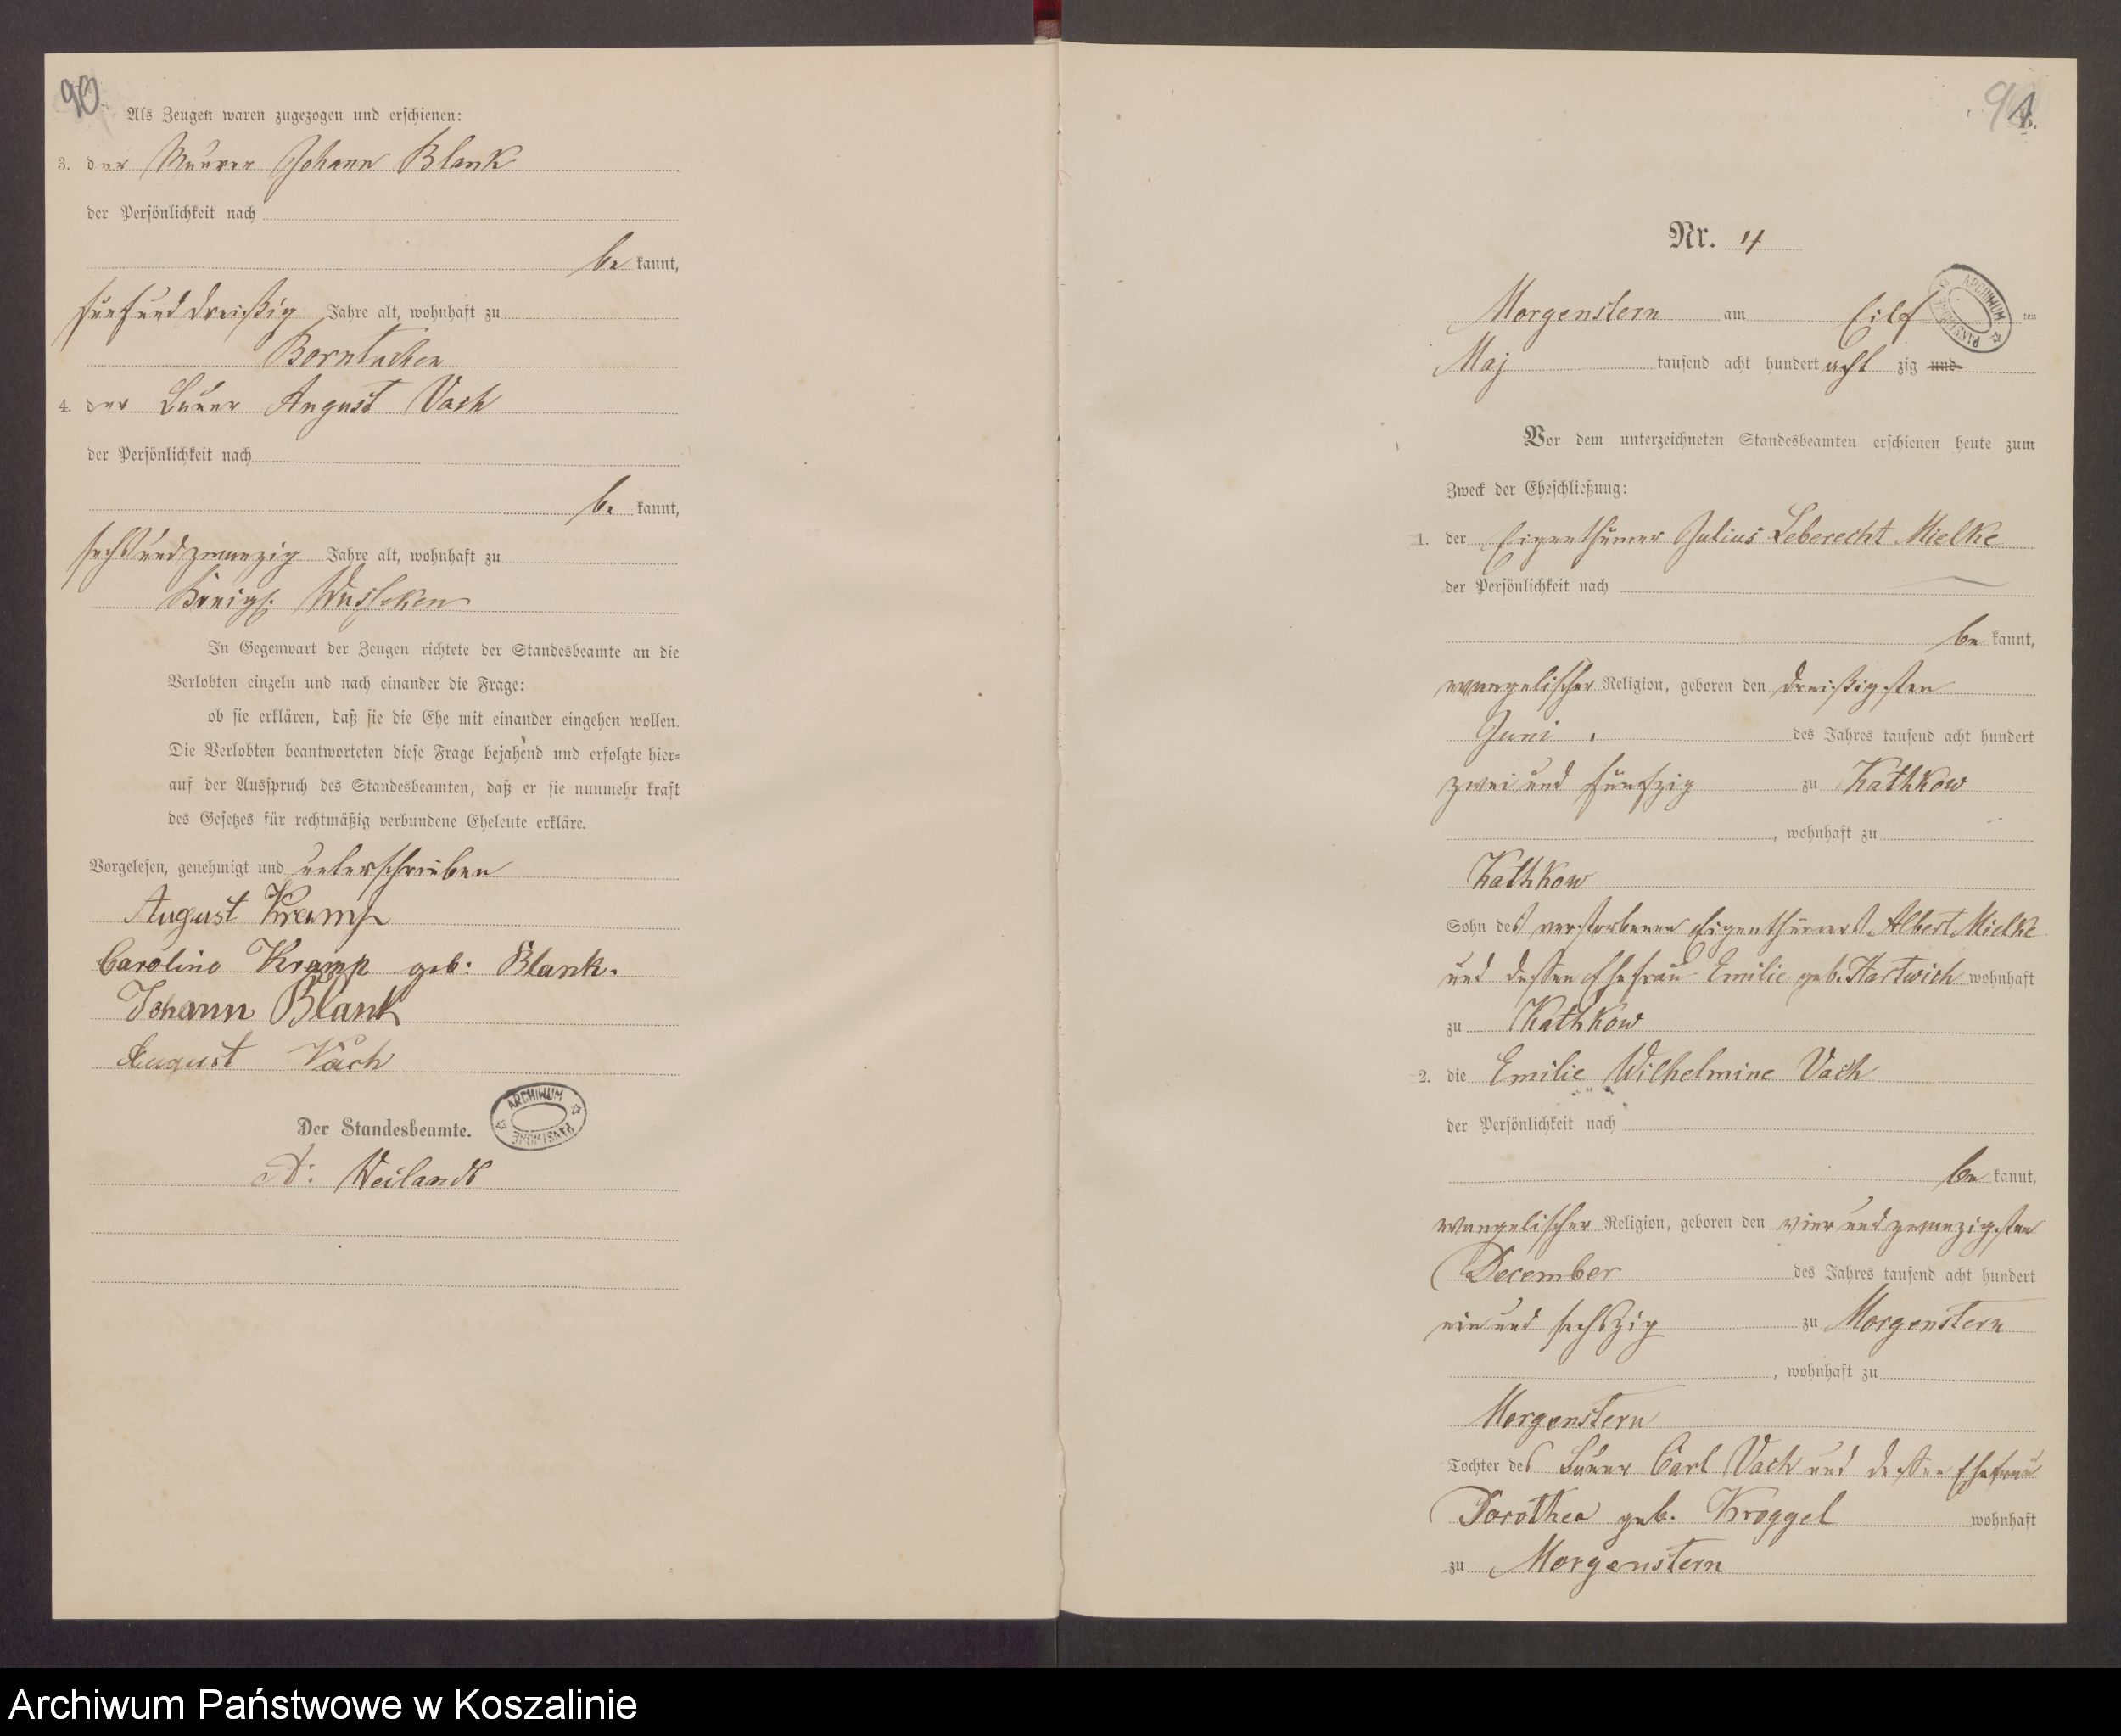 90.
Als Zeugen waren zugezogen und erschienen:
3. der Maurer Johann Blank
der Persönlichkeit nach
be kannt,
fünf und dreißig Jahre alt, wohnhaft zu
Borntuchen
4. der Bauer August Vach
der Persönlichkeit nach
be kannt,
sechs und zwanzig Jahre alt, wohnhaft zu
Königl. Wusseken
In Gegenwart der Zeugen richtete der Standesbeamte an die
Verlobten einzeln und nach einander die Frage:
ob sie erklären, daß sie die Ehe mit einander eingehen wollen.
Die Verlobten beantworteten diese Frage bejahend und erfolgte hier-
auf der Ausspruch des Standesbeamten, daß er sie nunmehr kraft
des Gesetzes für rechtmäßig verbundene Eheleute erkläre.
Vorgelesen, genehmigt und unterschrieben
August Kramp
Caroline Kramp geb: Blank.
Johann Blank
August Vach
Der Standesbeamte.
ARCHIWUM PAŃSTWOWE
A: Weilandt
Nr. 4
ARCHIWUM PAŃSTWOWE
Morgenstern am Eilf ten
Maj tausend acht hundert acht zig und
Vor dem unterzeichneten Standesbeamten erschienen heute zum
Zweck der Eheschließung:
1. der Eigenthümer Julius Leberecht Mielke
der Persönlichkeit nach
be kannt,
evangelischer Religion, geboren den dreißigsten
Juni des Jahres tausend acht hundert
zwei und fünfzig zu Kathkow
, wohnhaft zu
Kathkow
Sohn des verstorbenen Eigenthümers Albert Mielke
und dessen Ehefrau Emilie geb. Hartwich wohnhaft
zu Kathkow
2. die Emilie Wilhelmine Vach
der Persönlichkeit nach
be kannt,
evangelischer Religion, geboren den vier und zwanzigsten
December des Jahres tausend acht hundert
ein und sechszig zu Morgenstern
, wohnhaft zu
Morgenstern
Tochter des Bauer Carl Vach und dessen Ehefrau
Dorothea geb. Kroggel wohnhaft
zu Morgenstern
Archiwum Państwowe w Koszalinie